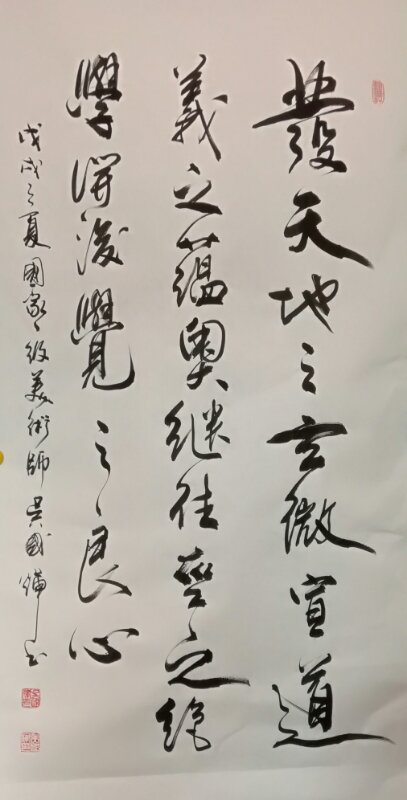 發天地之玄微宣道
義之蘊奥继往聖之绝
學開後覺之良心
戊戌之夏國家一级美術師吴國书